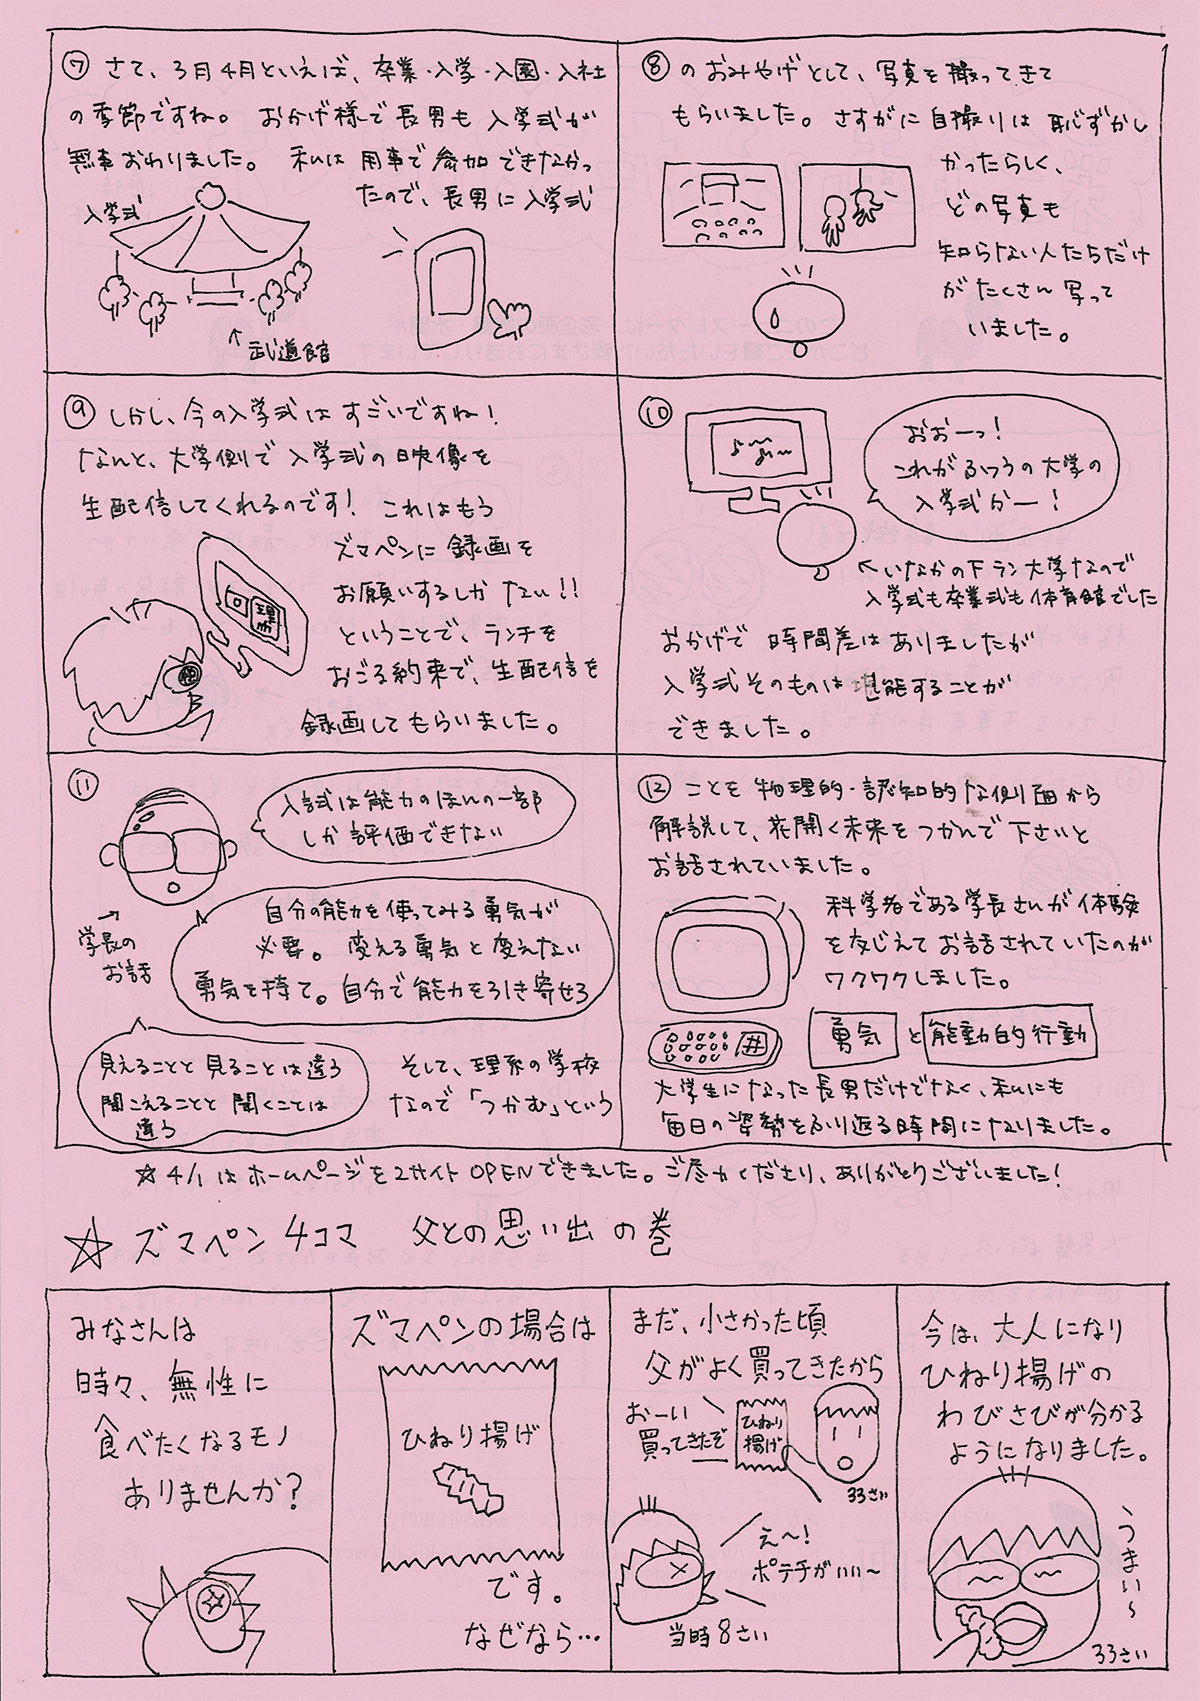 ⑦ さて、3月4月といえば、卒業・入学・入園・入社
の季節ですね。おかげ様で長男も入学式が
無事おわりました。私は用事で参加できなかっ
たので、長男に入学式
入学式
↑武道館
⑧ のおみやげとして、写真を撮ってきて
もらいました。さすがに自撮りは恥ずかし
かったらしく、
どの写真も
知らない人たちだけ
がたくさん写って
いました。
⑨ しかし、今の入学式はすごいですね!
なんと、大学側で入学式の映像を
生配信してくれるのです! これはもう
ズマペンに録画を
お願いするしかない!!
ということで、ランチを
おごる約束で、生配信を
録画してもらいました。
⑩
おおーっ!
これがふつうの大学の
入学式かー!
←いなかの下ラン大学なので
入学式も卒業式も体育館でした
おかげで時間差はありましたが
入学式そのものは堪能することが
できました。
⑪
入試は能力のほんの一部
しか評価できない
→
学長の
お話
自分の能力を使ってみる勇気が
必要。変える勇気と変えない
勇気を持て。自分で能力を引き寄せろ
見えることと見ることは違う
聞こえることと聞くことは
違う
そして、理系の学校
なので「つかむ」という
⑫ ことを物理的・認知的な側面から
解説して、花開く未来をつかんで下さいと
お話されていました。
科学者である学長さんが体験
を交じえてお話されていたのが
ワクワクしました。
勇気 と 能動的行動
大学生になった長男だけでなく、私にも
毎日の姿勢をふり返る時間になりました。
☆4/1はホームページを2サイトOPENできました。ご尽力くださり、ありがとうございました!
☆ ズマペン4コマ 父との思い出の巻
みなさんは
時々、無性に
食べたくなるモノ
ありませんか?
ズマペンの場合は
ひねり揚げ
です。
なぜなら…
まだ、小さかった頃
父がよく買ってきたから
おーい
買ってきたぞ
ひねり
揚げ
33さい
え〜!
ポテチがいい〜
当時8さい
今は、大人になり
ひねり揚げの
わびさびが分かる
ようになりました。
うまい〜
33さい